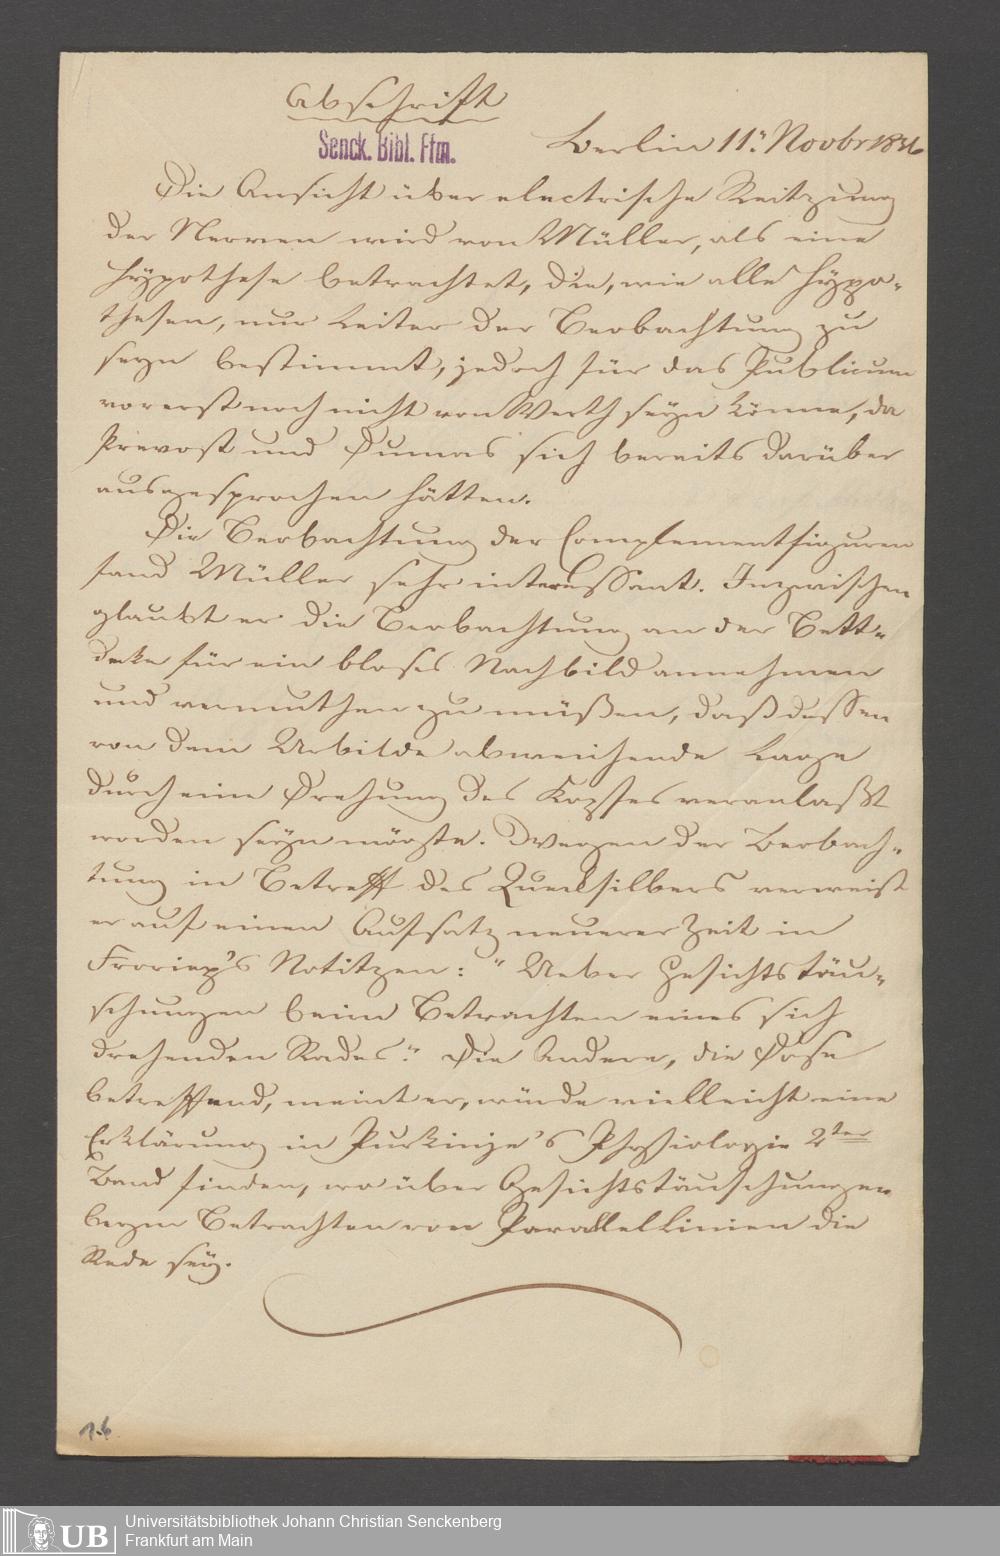 Abschrift
Senck. Bibl. Ffm.
Berlin 11n. Novbr 1836
Die Ansicht über electrische Reitzung
der Nerven wird von Müller, als eine
Hÿpothese betrachtet, die, wie alle Hÿpo-
thesen, nur Leiter der Beobachtung zu
seyn bestimmt, jedoch für das Publicum
vorerst noch nicht von Werth seÿn könne, da
Prevost und Dumas sich bereits darüber
ausgesprochen hätten.
Die Beobachtung der Complementfiguren
fand Müller sehr interessant. Inzwischen
glaubt er die Beobachtung an der Bett-
decke für ein bloses Nachbild annehmen
und vermuthen zu müßen, daß dessen
von dem Urbilde abweichende Lage
durch eine Drehung des Kopfes veranlaßt
worden seÿn mögte. Wegen der Beobach-
tung in Betreff des Quecksilbers verweist
er auf einen Aufsatz neuerer Zeit in
Froriep's Notitzen: "Ueber Gesichtstäu-
schungen beim Betrachten eines sich
drehenden Rades". Die Andere, die Dose
betreffend, meint er, würde vielleicht eine
Erklärung in Purkinje's Phÿsiologie 2ter
Band finden, wo über Gesichtstäuschungen
beym Betrachten von Parallellinien die
Rede seÿ.
1.6
UB
Universitätsbibliothek Johann Christian Senckenberg
Frankfurt am Main